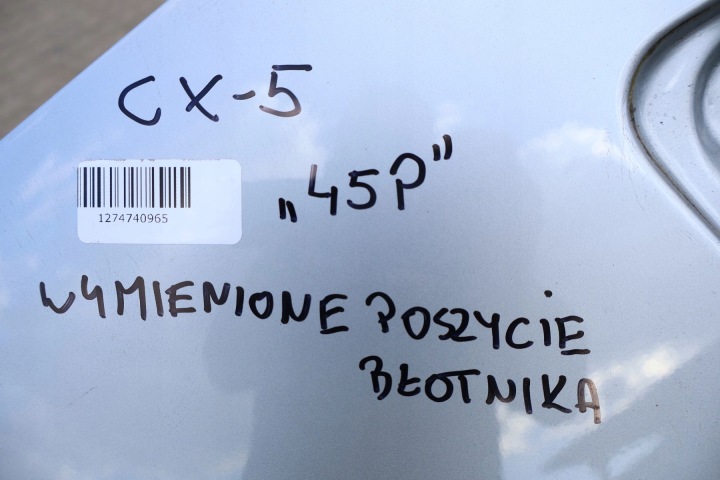 CX-5
1274740965
„45P”
WYMIENIONE POSZYCIE
BŁOTNIKA